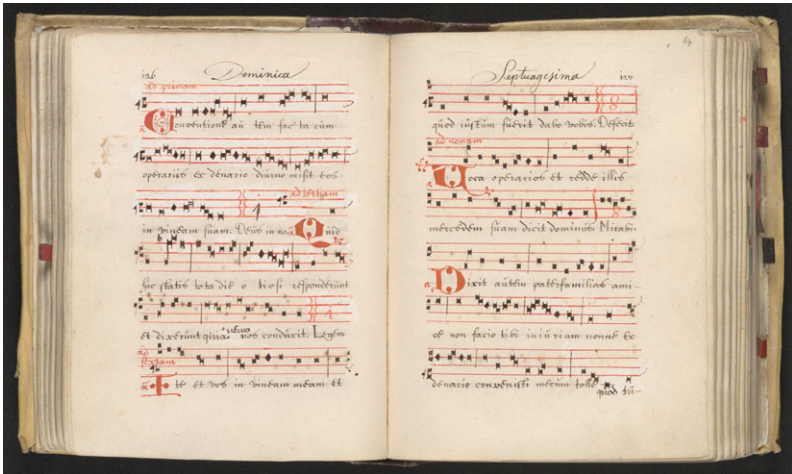 126 Dominica
ad primam
Conventione aũ tem fac ta cum
operariis ex denario diurno misit eos
ad tertiam
in vineam suam. Deus in no Quid
hic statis tota die o tiosi responderunt
et dixerunt quia nemo nos conduxit. Legem
ad sextam
I te et vos in vineam meam et
Septuagesima
quod iustum fuerit dabo vobis. Defecit
ad nonam
Voca operarios et redde illis
mercedem suam dicit dominus. Mirabi
Dixit autem paterfamilias ami
ce non facio tibi iniuriam nonne ex
denario convenisti mecum tolle
quod tu